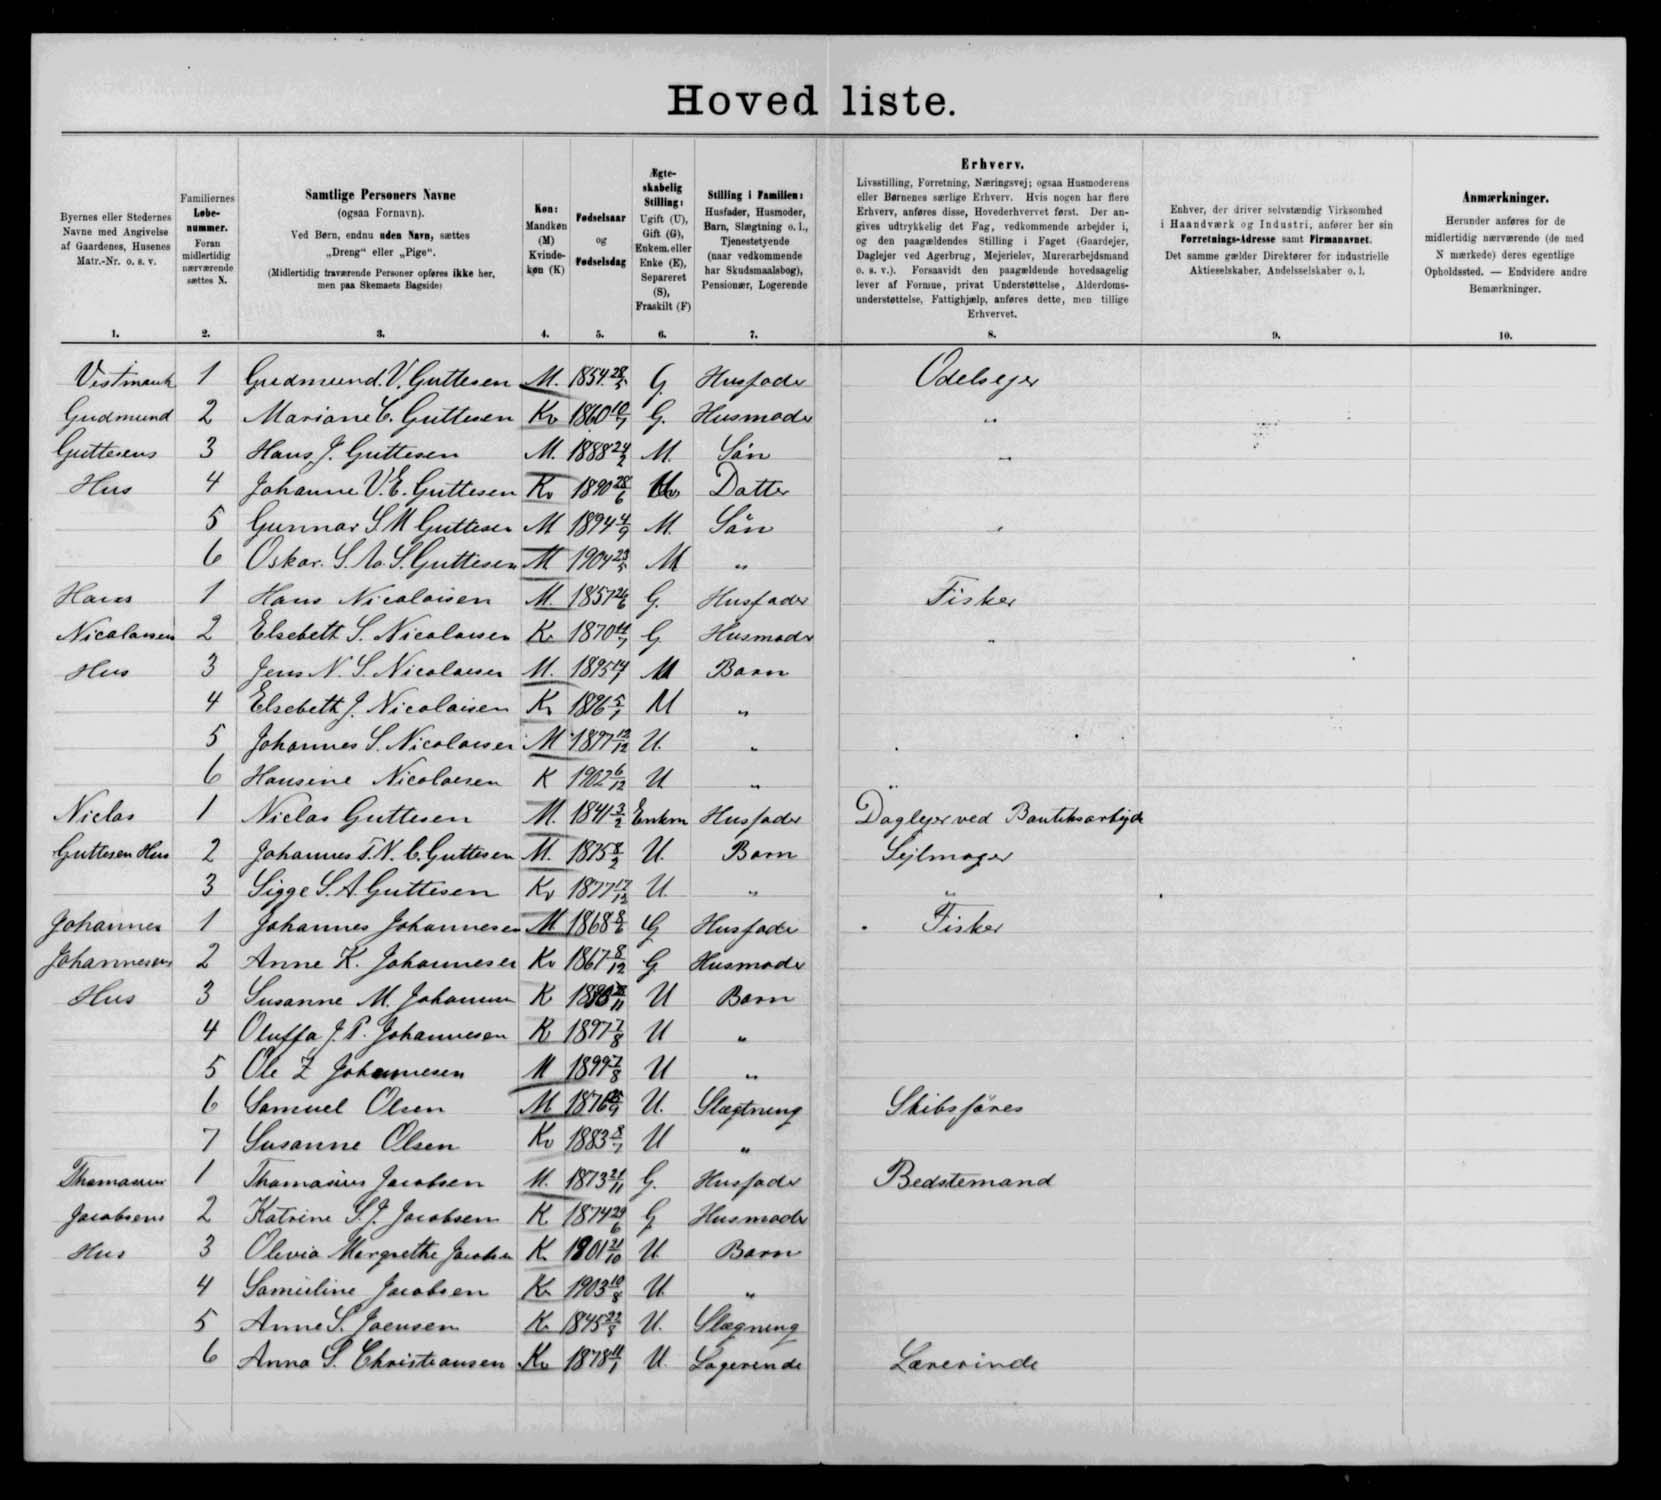 Hovedliste.
Byernes eller Stedernes Navne med Angivelse af Gaardenes, Husenes Matr.-Nr. o. s. v.
Familiernes Løbe-nummer. Foran midlertidig nærværende sættes N.
Samtlige Personers Navne
(ogsaa Fornavn).
Ved Børn, endnu uden Navn, sættes
„Dreng“ eller „Pige“.
(Midlertidig fraværende Personer opføres ikke her, men paa Skemaets Bagside)
Køn: Mandkøn (M) Kvinde-køn (K)
Fødselsaar og Fødselsdag
Ægte-skabelig Stilling: Ugift (U), Gift (G), Enkem. eller Enke (E), Separeret (S), Fraskilt (F)
Stilling i Familien: Husfader, Husmoder, Barn, Slægtning o. l., Tjenestetyende (naar vedkommende har Skudsmaalsbog), Pensionær, Logerende
Erhverv.
Livsstilling, Forretning, Næringsvej; ogsaa Husmoderens eller Børnenes særlige Erhverv. Hvis nogen har flere Erhverv, anføres disse, Hovederhvervet først. Der angives udtrykkelig det Fag, vedkommende arbejder i, og den paagældendes Stilling i Faget (Gaardejer, Daglejer ved Agerbrug, Mejerielev, Murerarbejdsmand o. s. v.). Forsaavidt den paagældende hovedsagelig lever af Formue, privat Understøttelse, Alderdoms-understøttelse, Fattighjælp, anføres dette, men tillige Erhvervet.
Enhver, der driver selvstændig Virksomhed i Haandværk og Industri, anfører her sin Forretnings-Adresse samt Firmanavnet. Det samme gælder Direktører for industrielle Aktieselskaber, Andelsselskaber o. l.
Anmærkninger.
Herunder anføres for de midlertidig nærværende (de med N mærkede) deres egentlige Opholdssted. — Endvidere andre Bemærkninger.
1. 2. 3. 4. 5. 6. 7. 8. 9. 10.
1 Gudmund. V. Guttesen M. 1854 28/5 G Husfader Odelsejer
Gudmund 2 Mariane C. Guttesen Kv 1860 10/7 G. Husmoder "
Guttesens 3 Hans J. Guttesen M. 1888 24/2 M. Sön "
Hus 4 Johanne V. E. Guttesen Kv 1890 28/6 Datter
5 Gunnar S M Guttesen M 1894 4/9 M. Sön
6 Oskar. S. S. Guttesen M 1904 23/5 M "
Hans 1 Hans Nicolaisen M. 1857 26/6 G. Husfader Fisker
Nicolaisens 2 Elsebeth S. Nicolaisen K. 1870 11/7 G Husmoder "
Hus 3 Jens N. S. Nicolaisen M. 1895 M Barn
4 Elsebeth J. Nicolaisen K 1896 5/1 M "
5 Johannes S. Nicolaisen M 1897 12/12 U. "
6 Hansine Nicolaisen K 1902 6/12 U "
Niclas 1 Niclas Guttesen M. 1841 3/2 Enkem Husfader Daglejer ved
Guttesen Hus 2 Johannes T. N. C. Guttesen M. 1875 8/2 U. Barn Sejlmager
3 Sigge S. A Guttesen Kv 1877 17/12 U. " "
Johannes 1 Johannes Johannesen M 1868 8/6 G Husfader Fisker
Johannesens 2 Anne K. Johannesen Kv 1867 8/12 G Husmoder
Hus 3 Susanne M. Johannesen K U Barn
4 Oluffa J. P. Johannesen K 1897 7/8 U "
5 Ole Z Johannesen M 1899 7/8 U "
6 Samuel Olsen M 1876 U. Slægtning Skibsförer
7 Susanne Olsen Kv 1883 8/7 U "
1 Thomasius Jacobsen M. 1873 21/11 G. Husfader Bedstemand
Jacobsens 2 Katrine S. J. Jacobsen K 1874 29/6 G Husmoder
Hus 3 Olevia Margrethe Jacobsen K 1901 21/10 U Barn
4 Samuline Jacobsen K 1903 10/8 U "
5 Anne S. Joensen K 1845 22/8 U. Slægning
6 Anna S. Christiansen Kv 1878 11/1 U. Logerende Lærerinde